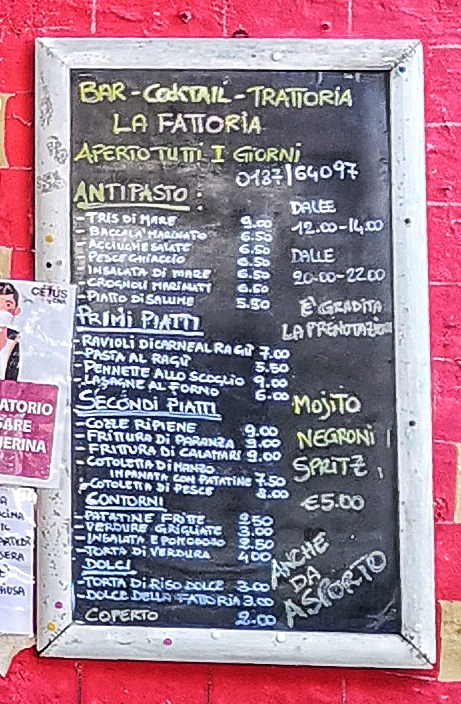 BAR - COCKTAIL - TRATTORIA
LA FATTORIA
APERTO TUTTI I GIORNI
0187/64097
ANTIPASTO:
- TRIS DI MARE 9.00
- BACCALA' MARINATO 6.50
- ACCIUGHE SALATE 6.50
- PESCE GHIACCIO 6.50
- INSALATA DI MARE 6.50
- GROGNOLI MARINATI 6.50
- PIATTO DI SALUMI 5.50
DALLE
12.00-14.00
DALLE
20.00-22.00
E' GRADITA
LA PRENOTAZIONE
PRIMI PIATTI
- RAVIOLI DI CARNE AL RAGÙ 7.00
- PASTA AL RAGÙ 5.50
- PENNETTE ALLO SCOGLIO 9.00
- LASAGNE AL FORNO 6.00
SECONDI PIATTI
- COZZE RIPIENE 9.00
- FRITTURA DI PARANZA 9.00
- FRITTURA DI CALAMARI 9.00
- COTOLETTA DI MANZO
IMPANATA CON PATATINE 7.50
- COTOLETTA DI PESCE 8.00
CONTORNI
- PATATINE FRITTE 2.50
- VERDURE GRIGLIATE 3.00
- INSALATA E POMODORO 2.50
- TORTA DI VERDURA 4.00
DOLCI
- TORTA DI RISO DOLCE 3.00
- DOLCE DELLA FATTORIA 3.00
COPERTO 2.00
MOJITO
NEGRONI
SPRITZ
€5.00
ANCHE
DA
ASPORTO
CETUS
ATORIO
SARE
ERINA
A
CINA
IL
ARTEDÌ
SERA
È
HIUSA